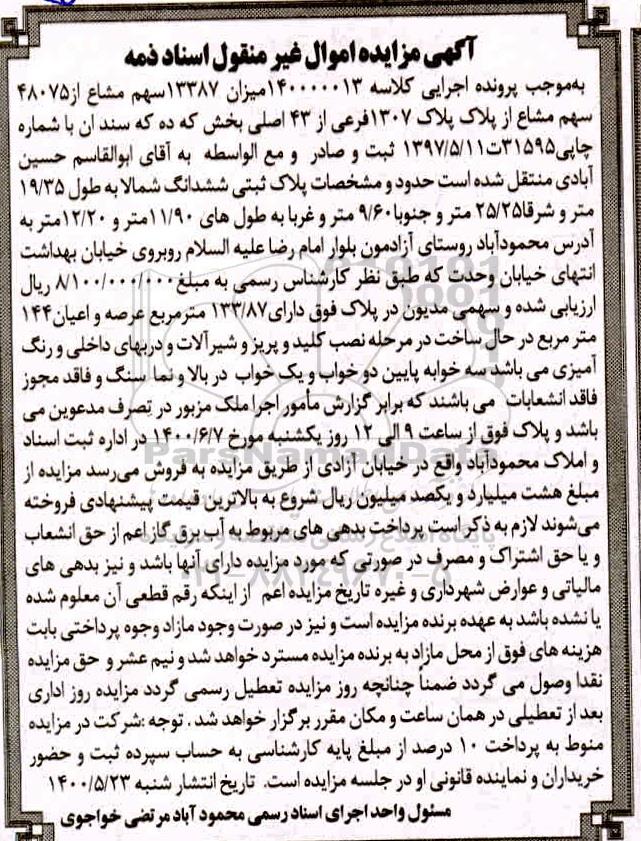 آگهی مزایده اموال غیر منقول اسناد ذمه
به‌موجب پرونده اجرایی کلاسه ۱۴۰۰۰۰۰۱۳میزان ۱۳۳۸۷سهم مشاع از۴۸۰۷۵
سهم مشاع از پلاک پلاک ۱۳۰۷فرعی از ۴۳ اصلی بخش که ده که سند ان با شماره
چاپی۳۱۵۹۵ت۱۳۹۷/۵/۱۱ ثبت و صادر و مع الواسطه به آقای ابوالقاسم حسین
آبادی منتقل شده است حدود و مشخصات پلاک ثبتی ششدانگ شمالا به طول ۱۹/۳۵
متر و شرقا۲۵/۲۵ متر و جنوبا۹/۶۰ متر و غربا به طول های ۱۱/۹۰متر و ۱۲/۲۰متر به
آدرس محمودآباد روستای آزادمون بلوار امام رضا علیه السلام روبروی خیابان بهداشت
انتهای خیابان وحدت که طبق نظر کارشناس رسمی به مبلغ۸/۱۰۰/۰۰۰/۰۰۰ ریال
ارزیابی شده و سهمی مدیون در پلاک فوق دارای۱۳۳/۸۷ مترمربع عرصه و اعیان۱۴۴
متر مربع در حال ساخت در مرحله نصب کلید و پریز و شیرآلات و دربهای داخلی و رنگ
آمیزی می باشد سه خوابه پایین دو خواب و یک خواب در بالا و نما سنگ و فاقد مجوز
فاقد انشعابات می باشند که برابر گزارش مأمور اجرا ملک مزبور در تصرف مدعوین می
باشد و پلاک فوق از ساعت ۹ الی ۱۲ روز یکشنبه مورخ ۱۴۰۰/۶/۷ در اداره ثبت اسناد
و املاک محمودآباد واقع در خیابان آزادی از طریق مزایده به فروش می‌رسد مزایده از
مبلغ هشت میلیارد و یکصد میلیون ریال شروع به بالاترین قیمت پیشنهادی فروخته
می‌شوند لازم به ذکر است پرداخت بدهی های مربوط به آب برق گاز اعم از حق انشعاب
و یا حق اشتراک و مصرف در صورتی که مورد مزایده دارای آنها باشد و نیز بدهی های
مالیاتی و عوارض شهرداری و غیره تاریخ مزایده اعم از اینکه رقم قطعی آن معلوم شده
یا نشده باشد به عهده برنده مزایده است و نیز در صورت وجود مازاد وجوه پرداختی بابت
هزینه های فوق از محل مازاد به برنده مزایده مسترد خواهد شد و نیم عشر و حق مزایده
نقدا وصول می گردد ضمناً چنانچه روز مزایده تعطیل رسمی گردد مزایده روز اداری
بعد از تعطیلی در همان ساعت و مکان مقرر برگزار خواهد شد . توجه :شرکت در مزایده
منوط به پرداخت ۱۰ درصد از مبلغ پایه کارشناسی به حساب سپرده ثبت و حضور
خریداران و نماینده قانونی او در جلسه مزایده است. تاریخ انتشار شنبه ۱۴۰۰/۵/۲۳
مسئول واحد اجرای اسناد رسمی محمود آباد مرتضی خواجوی
ParsNamadData